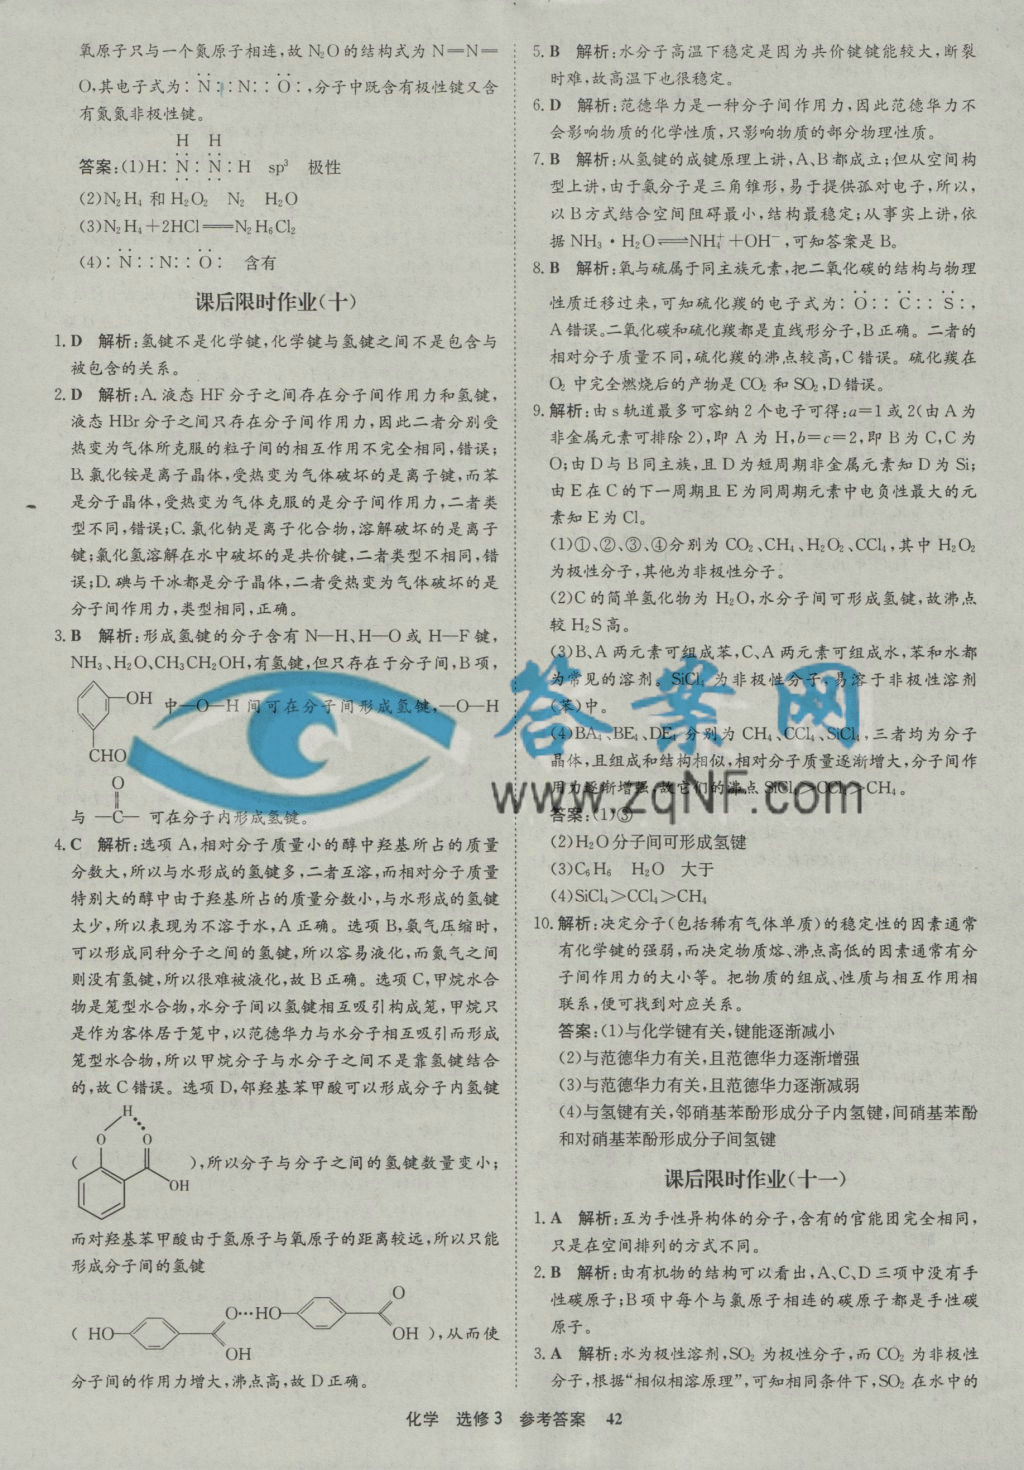 氧原子只与一个氮原子相连,故 N₂O 的结构式为 N═N═
O,其电子式为:N::N::O:,分子中既含有极性键又含
有氮氮非极性键。
H H
答案:(1)H:N:N:H sp³ 极性
(2)N₂H₄ 和 H₂O₂ N₂ H₂O
(3)N₂H₄+2HCl══N₂H₆Cl₂
(4):N::N::O: 含有
课后限时作业(十)
1. D 解析:氢键不是化学键,化学键与氢键之间不是包含与
被包含的关系。
2. D 解析:A.液态 HF 分子之间存在分子间作用力和氢键,
液态 HBr 分子之间只存在分子间作用力,因此二者分别受
热变为气体所克服的粒子间的相互作用不完全相同,错误;
B.氯化铵是离子晶体,受热变为气体破坏的是离子键,而苯
是分子晶体,受热变为气体克服的是分子间作用力,二者类
型不同,错误;C.氯化钠是离子化合物,溶解破坏的是离子
键;氯化氢溶解在水中破坏的是共价键,二者类型不相同,错
误;D.碘与干冰都是分子晶体,二者受热变为气体破坏的是
分子间作用力,类型相同,正确。
3. B 解析:形成氢键的分子含有 N—H、H—O 或 H—F 键,
NH₃、H₂O、CH₃CH₂OH,有氢键,但只存在于分子间,B 项,
—OH 中—O—H 间可在分子间形成氢键,—O—H
CHO
O
与 —C— 可在分子内形成氢键。
4. C 解析:选项 A,相对分子质量小的醇中羟基所占的质量
分数大,所以与水形成的氢键多,二者互溶,而相对分子质量
特别大的醇中由于羟基所占的质量分数小,与水形成的氢键
太少,所以表现为不溶于水,A 正确。选项 B,氨气压缩时,
可以形成同种分子之间的氢键,所以容易液化,而氮气之间
则没有氢键,所以很难被液化,故 B 正确。选项 C,甲烷水合
物是笼型水合物,水分子间以氢键相互吸引构成笼,甲烷只
是作为客体居于笼中,以范德华力与水分子相互吸引而形成
笼型水合物,所以甲烷分子与水分子之间不是靠氢键结合
的,故 C 错误。选项 D,邻羟基苯甲酸可以形成分子内氢键
H
O O
( OH ),所以分子与分子之间的氢键数量变小;
而对羟基苯甲酸由于氢原子与氧原子的距离较远,所以只能
形成分子间的氢键
O
O…HO
( HO OH ),从而使
OH
分子间的作用力增大,沸点高,故 D 正确。
5. B 解析:水分子高温下稳定是因为共价键键能较大,断裂
时难,故高温下也很稳定。
6. D 解析:范德华力是一种分子间作用力,因此范德华力不
会影响物质的化学性质,只影响物质的部分物理性质。
7. B 解析:从氢键的成键原理上讲,A、B 都成立;但从空间构
型上讲,由于氨分子是三角锥形,易于提供孤对电子,所以,
以 B 方式结合空间阻碍最小,结构最稳定;从事实上讲,依
据 NH₃·H₂O⇌NH₄⁺+OH⁻,可知答案是 B。
8. B 解析:氧与硫属于同主族元素,把二氧化碳的结构与物理
性质迁移过来,可知硫化羰的电子式为:O::C::S:,
A 错误。二氧化碳和硫化羰都是直线形分子,B 正确。二者的
相对分子质量不同,硫化羰的沸点较高,C 错误。硫化羰在
O₂ 中完全燃烧后的产物是 CO₂ 和 SO₂,D 错误。
9. 解析:由 s 轨道最多可容纳 2 个电子可得:a=1 或 2(由 A 为
非金属元素可排除 2),即 A 为 H,b=c=2,即 B 为 C,C 为
O;由 D 与 B 同主族,且 D 为短周期非金属元素知 D 为 Si;
由 E 在 C 的下一周期且 E 为同周期元素中电负性最大的元
素知 E 为 Cl。
(1)①、②、③、④分别为 CO₂、CH₄、H₂O₂、CCl₄,其中 H₂O₂
为极性分子,其他为非极性分子。
(2)C 的简单氢化物为 H₂O,水分子间可形成氢键,故沸点
较 H₂S 高。
(3)B、A 两元素可组成苯,C、A 两元素可组成水,苯和水都
为常见的溶剂。SiCl₄ 为非极性分子,易溶于非极性溶剂
(苯)中。
(4)BA₄、BE₄、DE₄ 分别为 CH₄、CCl₄、SiCl₄,三者均为分子
晶体,且组成和结构相似,相对分子质量逐渐增大,分子间作
用力逐渐增强,故它们的沸点 SiCl₄>CCl₄>CH₄。
答案:(1)③
(2)H₂O 分子间可形成氢键
(3)C₆H₆ H₂O 大于
(4)SiCl₄>CCl₄>CH₄
10. 解析:决定分子(包括稀有气体单质)的稳定性的因素通常
有化学键的强弱,而决定物质熔、沸点高低的因素通常有分
子间作用力的大小等。把物质的组成、性质与相互作用相
联系,便可找到对应关系。
答案:(1)与化学键有关,键能逐渐减小
(2)与范德华力有关,且范德华力逐渐增强
(3)与范德华力有关,且范德华力逐渐减弱
(4)与氢键有关,邻硝基苯酚形成分子内氢键,间硝基苯酚
和对硝基苯酚形成分子间氢键
课后限时作业(十一)
1. A 解析:互为手性异构体的分子,含有的官能团完全相同,
只是在空间排列的方式不同。
2. B 解析:由有机物的结构可以看出,A、C、D 三项中没有手
性碳原子;B 项中每个与氯原子相连的碳原子都是手性碳
原子。
3. A 解析:水为极性溶剂,SO₂ 为极性分子,而 CO₂ 为非极性
分子,根据“相似相溶原理”,可知相同条件下,SO₂ 在水中的
答案网
www.zqNF.com
化学 选修 3 参考答案 42